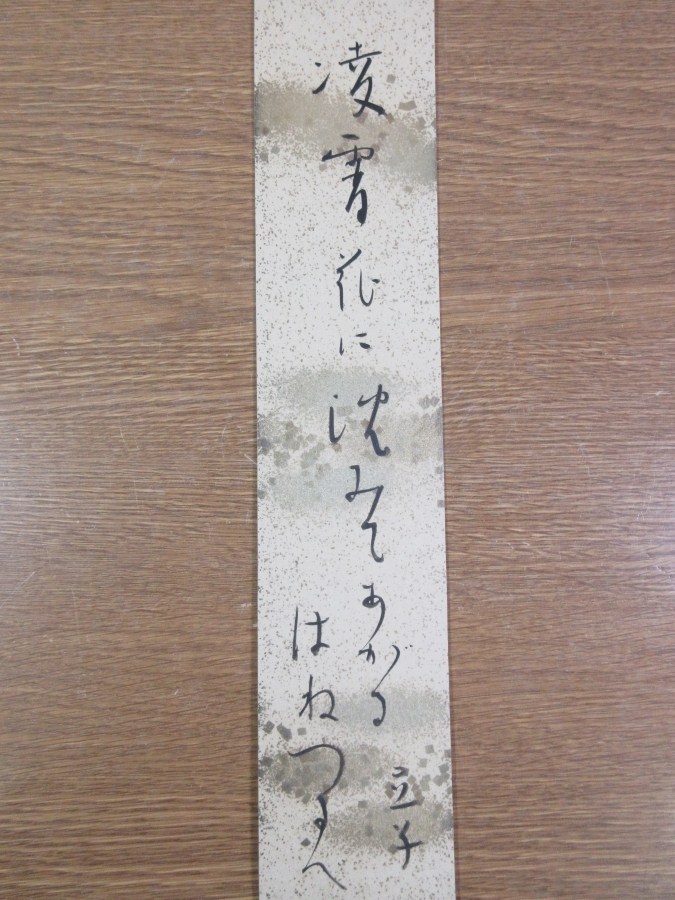 凌霄花に沈みてあがる
はねつるへ
立子